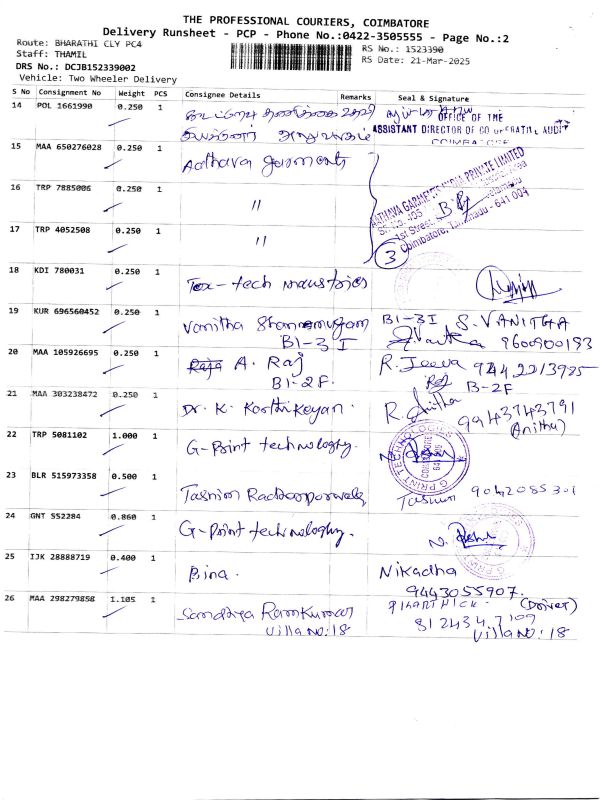 THE PROFESSIONAL COURIERS, COIMBATORE
Delivery Runsheet - PCP - Phone No.:0422-3505555 - Page No.:2
Route: BHARATHI CLY PC4
Staff: THAMIL
DRS No.: DCJB152339002
Vehicle: Two Wheeler Delivery
RS No.: 1523390
RS Date: 21-Mar-2025
S No Consignment No Weight PCS Consignee Details Remarks Seal & Signature
14 POL 1661990 0.250 1
OFFICE OF THE
ASSISTANT DIRECTOR OF CO OPERATIVE AUDIT
COIMBATORE
15 MAA 650276028 0.250 1 Aathava Garments
AATHAVA GARMENTS INDIA PRIVATE LIMITED
1st Street,
Coimbatore, Tamilnadu - 641 004
16 TRP 7885006 0.250 1 "
17 TRP 4052508 0.250 1 "
3
18 KDI 780031 0.250 1 Tex-tech industries
19 KUR 696560452 0.250 1 Vanitha Shanmugam B1-3I S. VANITHA
B1-3I 9600900193
20 MAA 105926695 0.250 1 A. Raj R. Jeeva 9442213985
B1-2F. B-2F
21 MAA 303238472 0.250 1 Dr. K. Karthikeyan. R. Anitha 9943743791
(Anitha)
22 TRP 5081102 1.000 1 G-Print technology.
G PRINT TECHNOLOGIES
COIMBATORE
23 BLR 515973358 0.500 1 Tasnim 9042085301
24 GNT 552284 0.860 1 G-Print technology.
25 IJK 28888719 0.400 1 Bina. Nikadha
9443055907.
26 MAA 298279858 1.105 1 Sandhya Ramkumar (Driver)
Villa NO: 18 Villa NO: 18